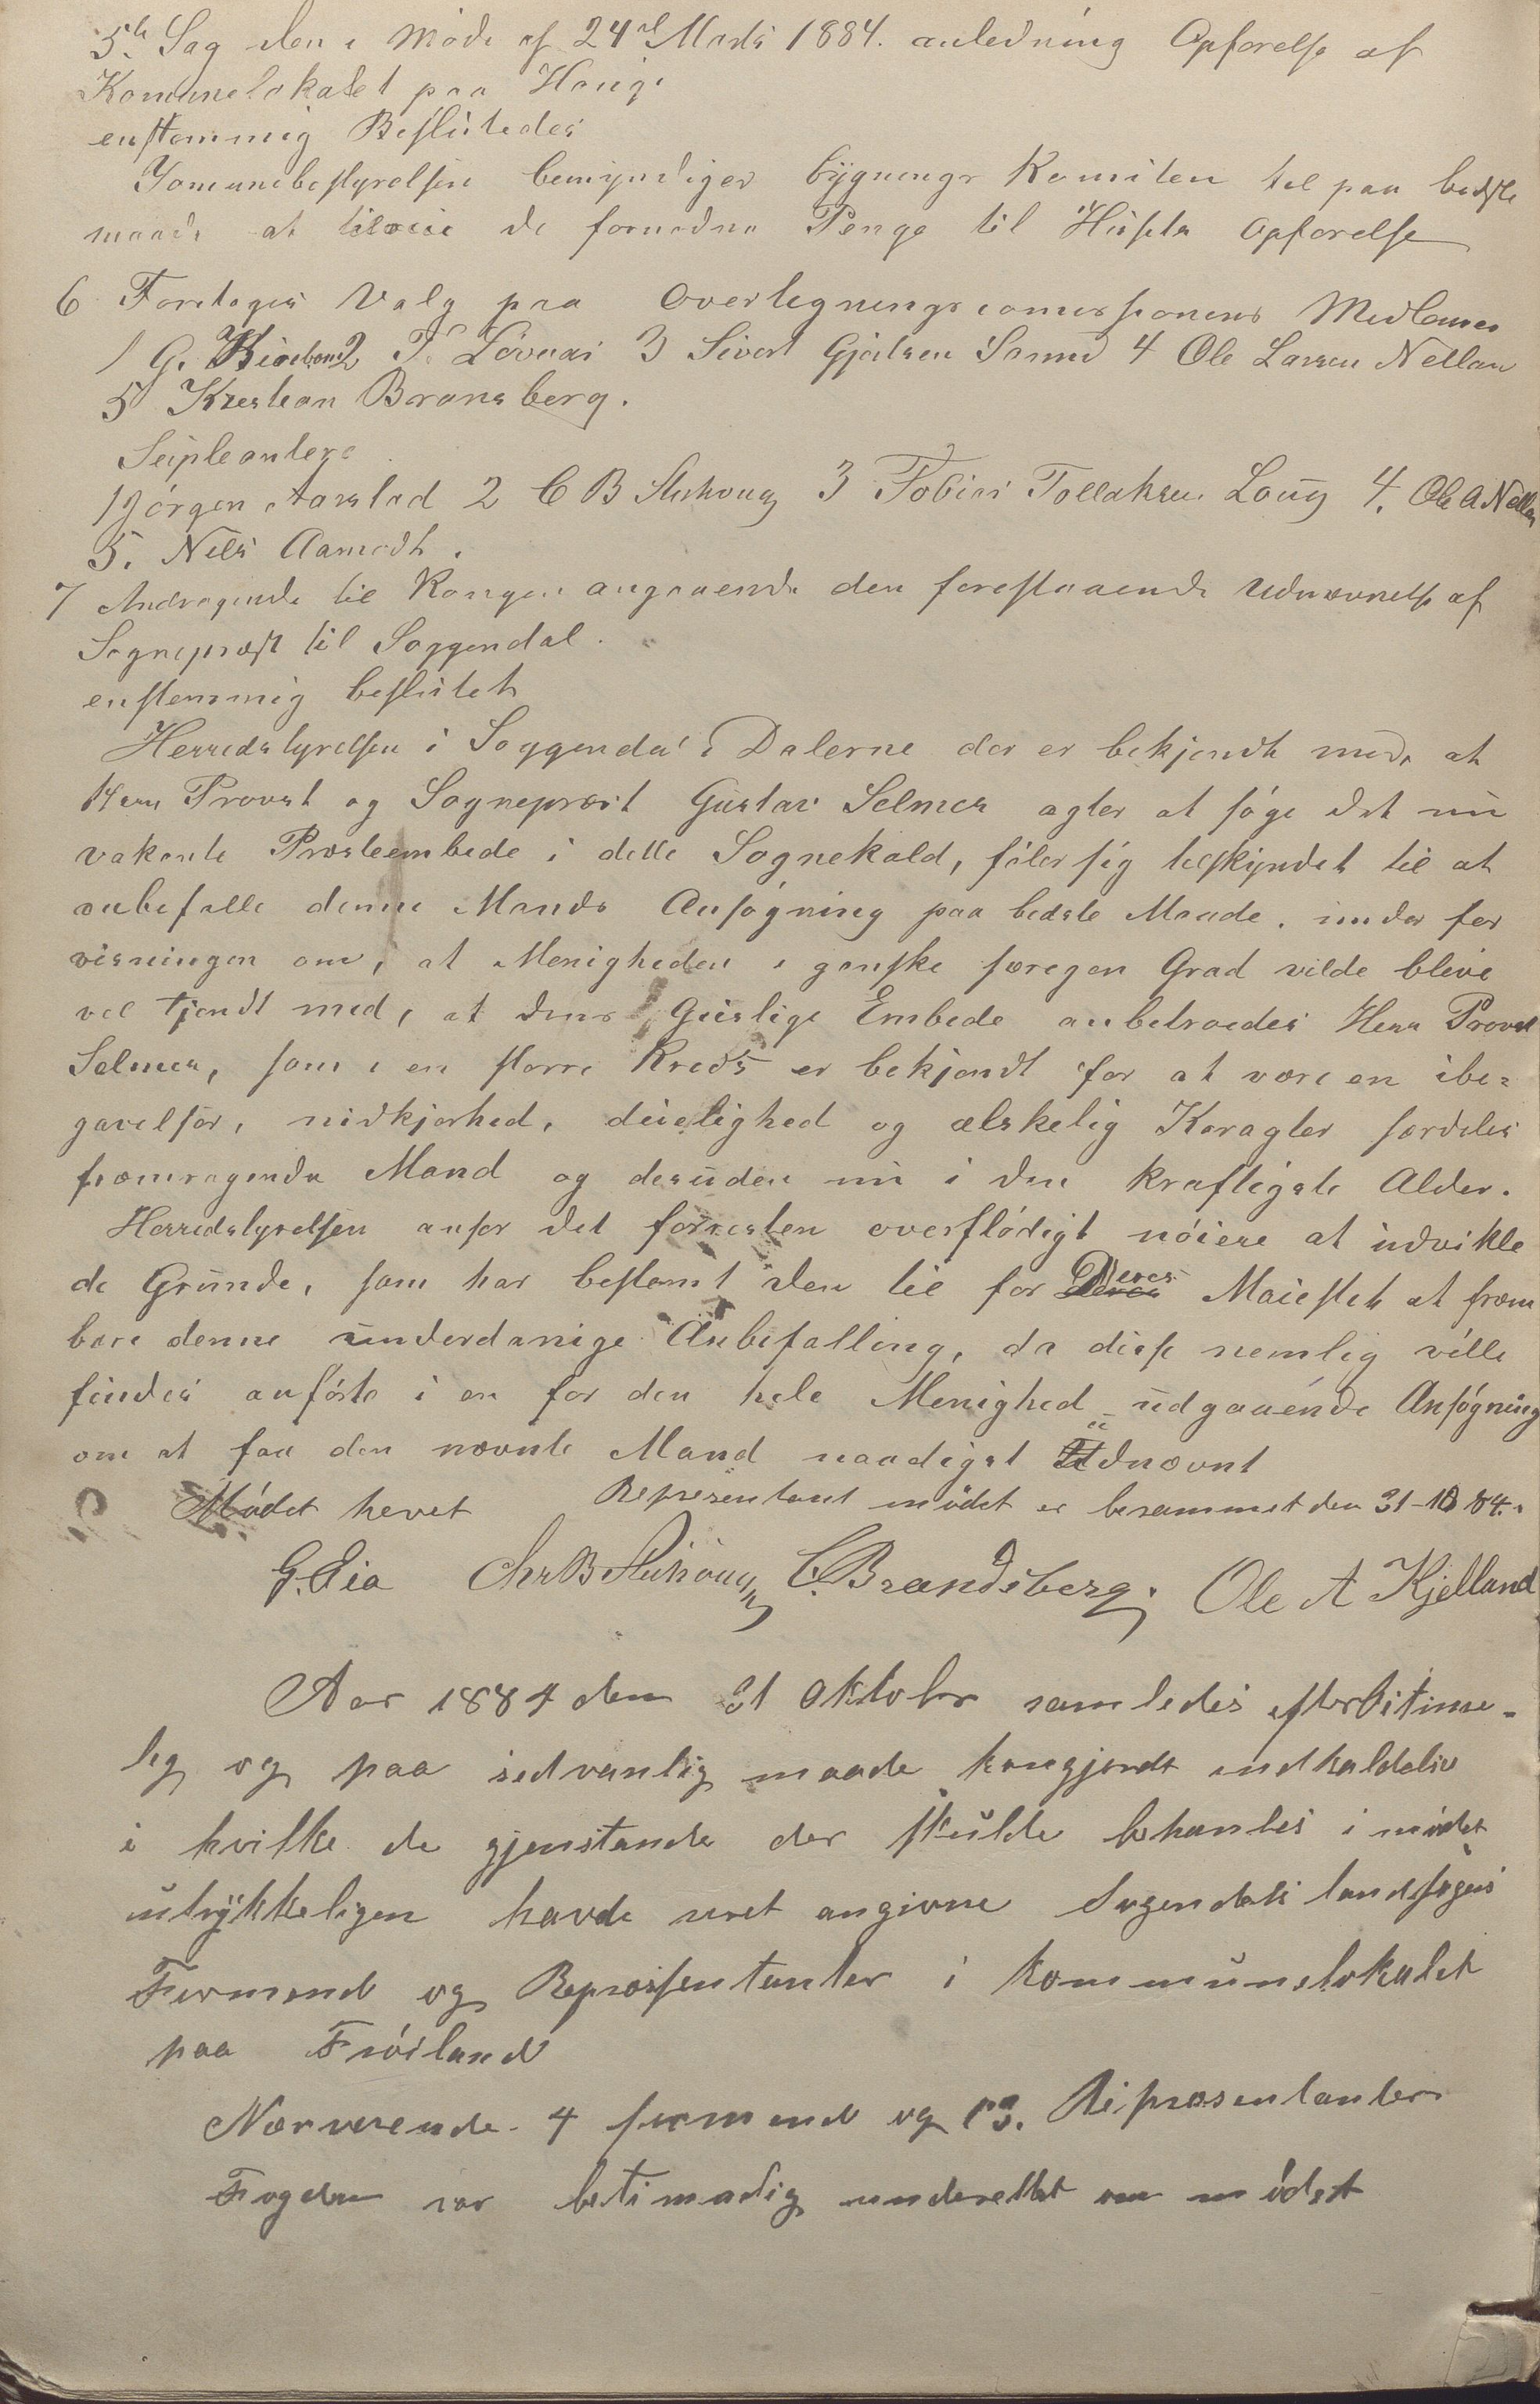 5te Sag den i Møde af 24de Marts 1884. anledning Opførelse af
Komunelokalet paa Haug.
enstemmig Beslütedes
Komunebestyrelsen bemyndiger bygnings Komiten til paa bedste
maade at tilveie de fornødne Penge til Hüsets Opførelse
6 Foretoges Valg paa Overlegningscomissionens Medlemer
1 G. 2 T. Løvaas 3 Sivert Gjertsen Sannes 4 Ole Larsen Nelland
5 Krestian Bransberg.
Süpleanter
1 Jørgen Aarstad 2 C B Stuhoug 3 Tobias Tollaksen Loüg 4. Ole A Nelland
5. Nils Aamodt.
7 Andragende til Kongen angaaende den forestaaende Udnævnelse af
Sogneprest til Soggendal.
enstemmig beslütet
Herredstyrelsen i Soggendal i Dalerne der er bekjendt med, at
Herr Provst og Sogneprest Güstav Selmer agter at søge det nü
vakante Præsteembede i dette Sognekald, føler sig tilskyndet til at
anbefalle denne Mands Ansøgning paa bedste Maade. ünder for
visningen om, at Menigheden i ganske særegen Grad vilde blive
vel tjendt med, at dens Geistlige Embede anbetroedes Herr Provst
Selmer, som i en større Kreds er bekjendt for at være en i be=
gavelser, nidkjærhed, düelighed og elskelig Karagter særdeles
fræmragende Mand og desüden nü i den kraftigste Alder.
Herredstyrelsen anser det forresten overflødigt nøiere at üdvikle
de Gründe, som har bestemt den til for Deres Maiestet at fræm
bære denne ünderdanige Anbefalling, da disse nemlig ville
findes anførte i en for den hele Menighed üdgaaende Ansøgning
om at faa den nævnte Mand naadigst üdnævnt
Mødet hevet Representant mødet er besammet den 31-10 84.
G. Eia Chr B Stuhoug C. Brandsberg. Ole A Kjelland
Aar 1884 den 31 Oktobr samledes efter bitime-
lig og paa sedvanlig maade kungjordt indkaldelse
i hvilke de gjenstande der skülde behanles i mødet
utrykkeligen havde veret angivne Sogendals landsogns
Formend og Repræsentanter i kommünelokalet
paa Frøiland
Nærverende 4 formend og 13. Repræsentanter
Fogden var betimadig underettet om mødet